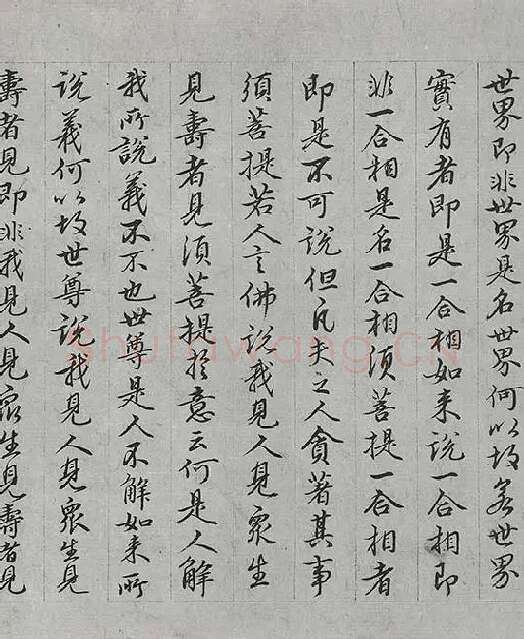 世界即非世界是名世界何以故若世界
實有者即是一合相如来說一合相即
非一合相是名一合相須菩提一合相者
即是不可說但凡夫之人貪著其事
須菩提若人言佛說我見人見眾生
見壽者見須菩提於意云何是人解
我所說義不不也世尊是人不解如来所
說義何以故世尊說我見人見眾生見
壽者見即非我見人見眾生見壽者見
Shufawang.CN